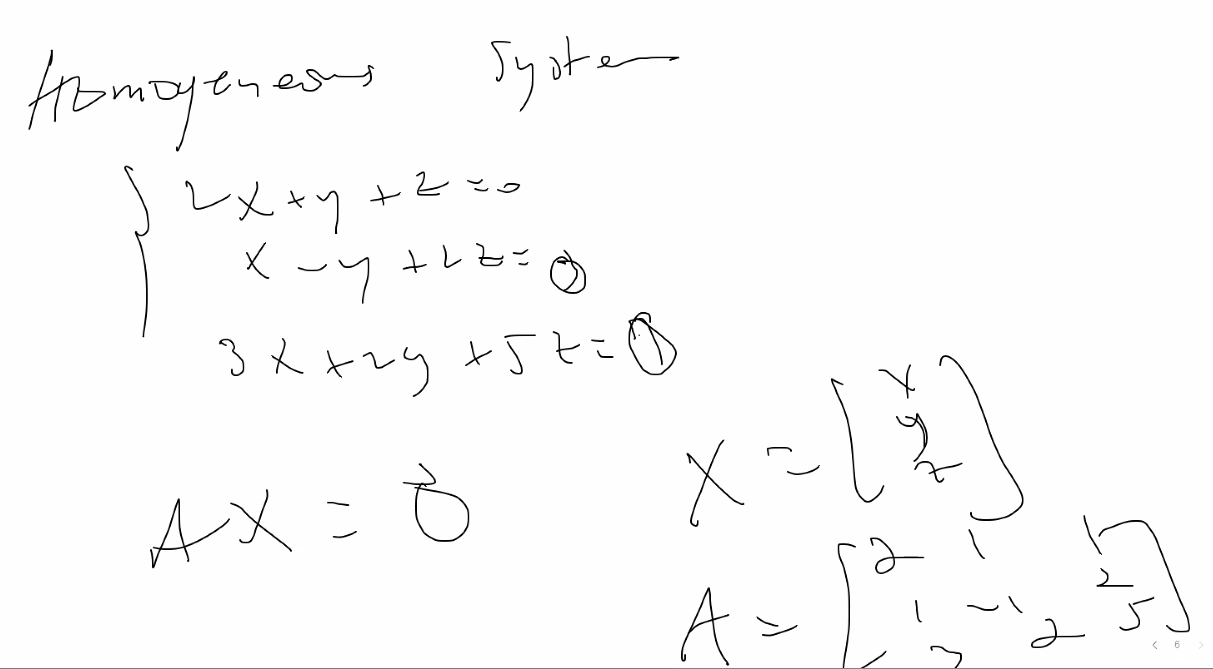 Homogeneous System
2x + y + z = 0
x - y + 2z = 0
3x + 2y + 5z = 0
X = [x
y
z]
AX = 0⃗
A = [2 1 1
1 -1 2
3 2 5]
6